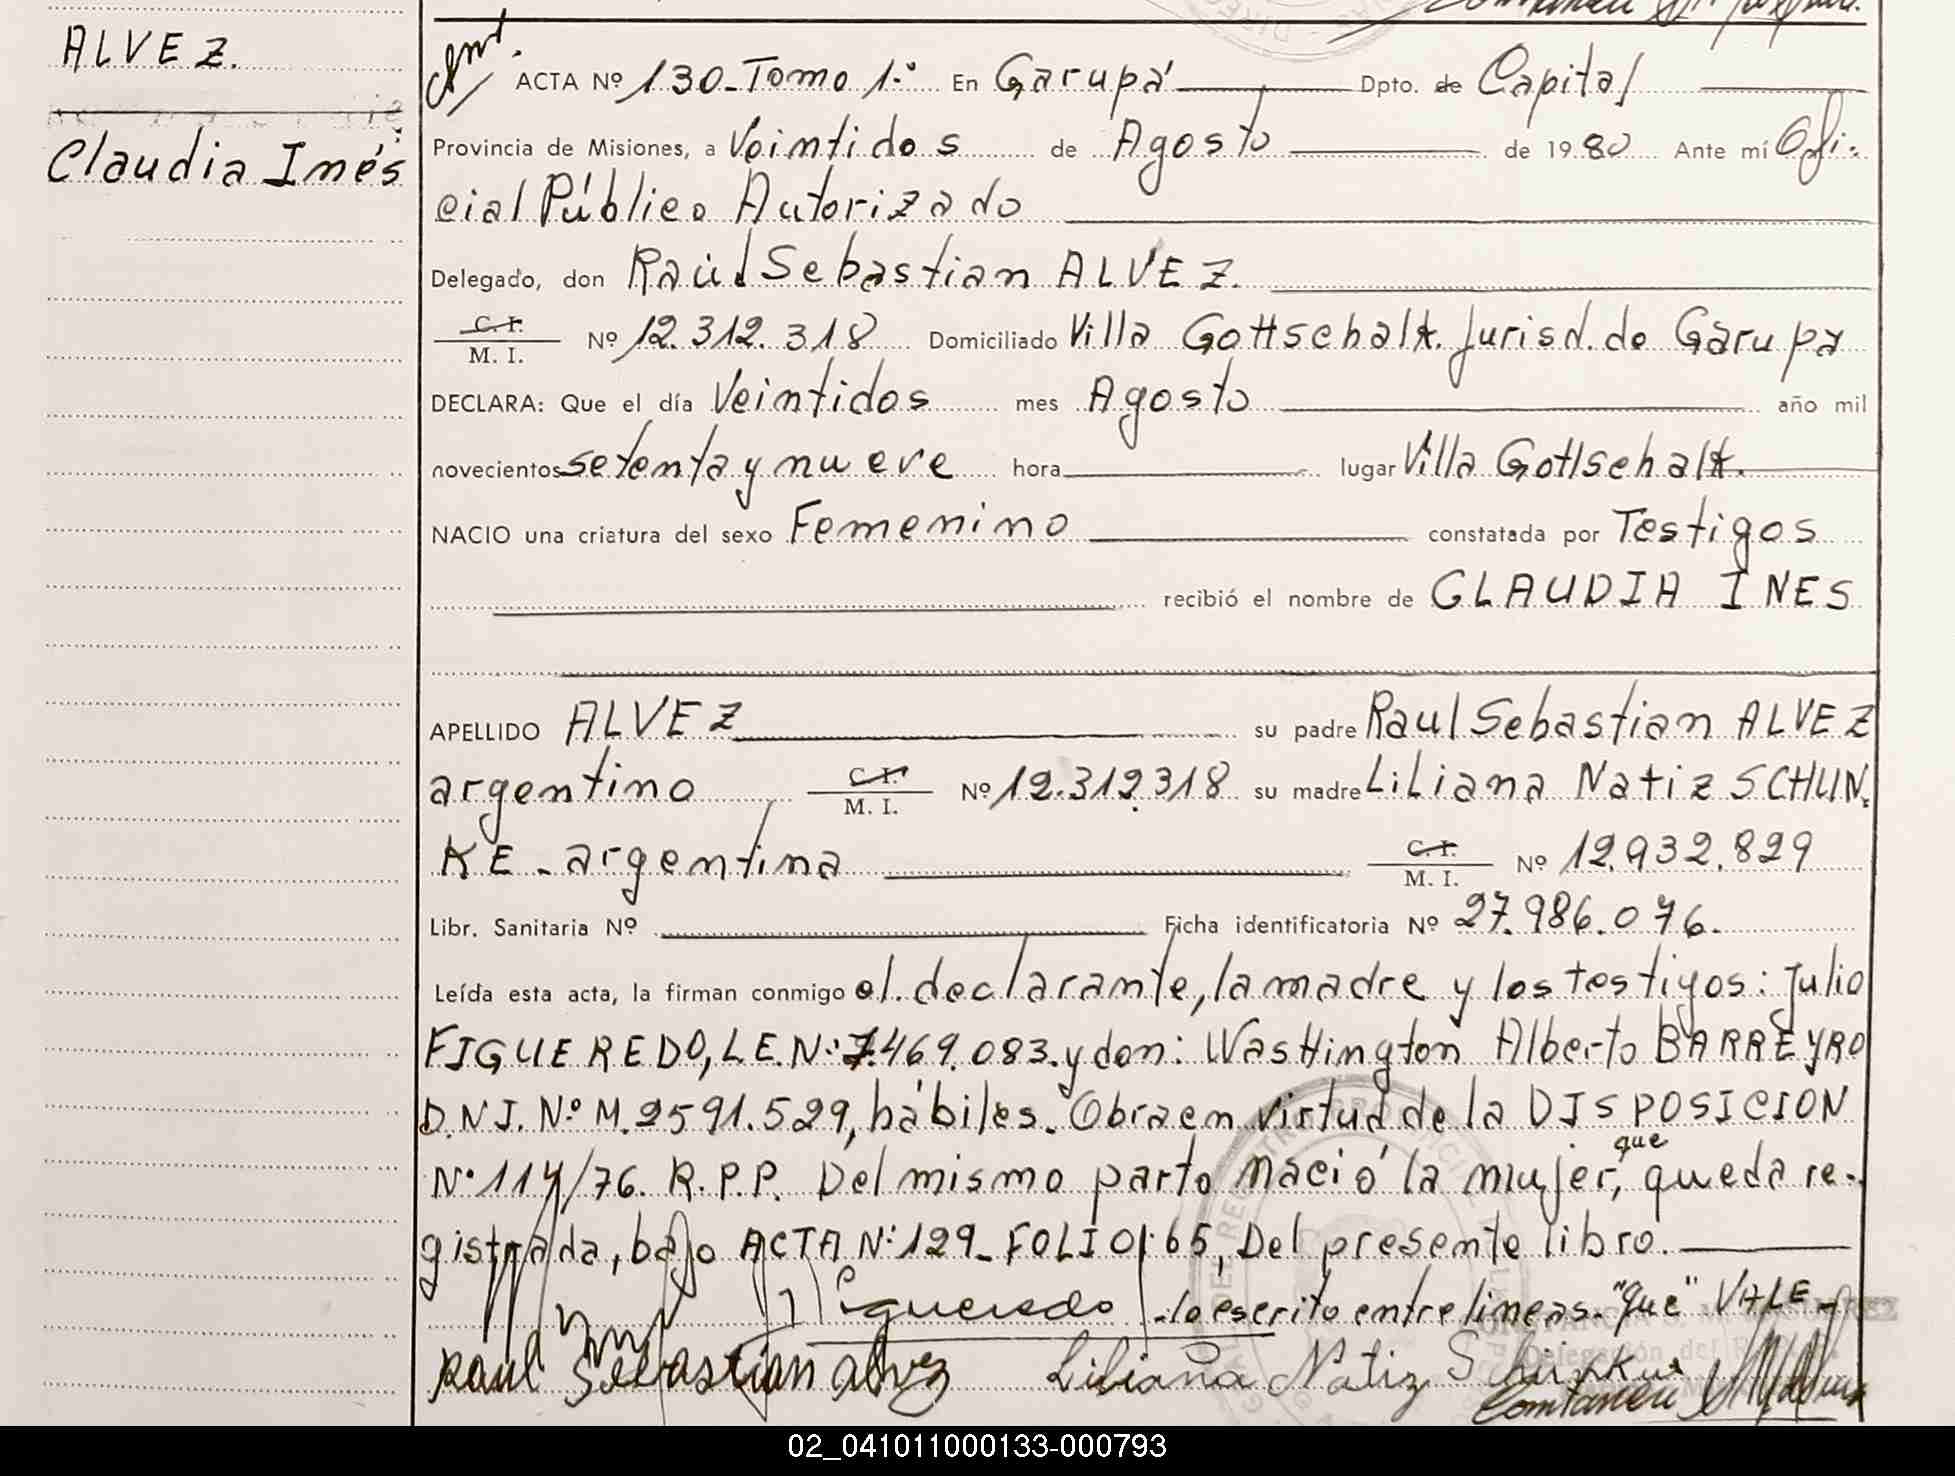 ALVEZ.
Claudia Inés
ACTA Nº 130-Tomo 1.º En Garupá Dpto. de Capital
Provincia de Misiones, a Veintidos de Agosto de 1980 Ante mí Ofi-
cial Público Autorizado
Delegado, don Raúl Sebastian ALVEZ.
C. I. / M. I. Nº 12.312.318 Domiciliado Villa Gottschalk. Jurisd. de Garupa
DECLARA: Que el día Veintidos mes Agosto año mil
novecientos setenta y nueve hora lugar Villa Gottschalk.
NACIO una criatura del sexo Femenino constatada por Testigos
recibió el nombre de CLAUDIA INES
APELLIDO ALVEZ su padre Raul Sebastian ALVEZ
argentino C. I. / M. I. Nº 12.312.318 su madre Liliana Natiz SCHUN-
KE - argentina C. I. / M. I. Nº 12.932.829
Libr. Sanitaria Nº Ficha identificatoria Nº 27.986.076.
Leída esta acta, la firman conmigo el declarante, la madre y los testigos: Julio
FIGUEREDO, L.E.N: 7.469.083. y don: WasHington Alberto BARREYRO
D.N.I. Nº M. 2591.529, hábiles. Obra en virtud de la DISPOSICION
Nº 114/76. R.P.P. Del mismo parto nació la mujer, que queda re-
gistrada, bajo ACTA N: 129_FOLIO: 65, Del presente libro.
Figueredo - lo escrito entre lineas. "que" VALE -
Raul Sebastian alvez Liliana Natiz
02_041011000133-000793